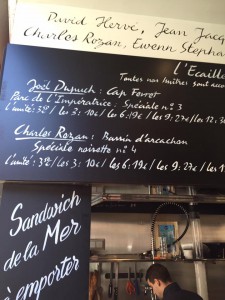 David Hervé, Jean Jacq
Charles Rozan, Ewenn Stepha
L'Ecaille
Toutes nos huîtres sont acco
Joël Dupuch: Cap Ferret
Parc de l'Impératrice: Spéciale n°3
L'unité: 3€/ les 3: 10€/ les 6: 19€/ les 9: 27€/ les 12: 3
Charles Rozan: Bassin d'arcachon
Spéciale noisette n°4
L'unité: 3€/ les 3: 10€/ les 6: 19€/ les 9: 27€/ les 1
Sandwich
de la Mer
à emporter